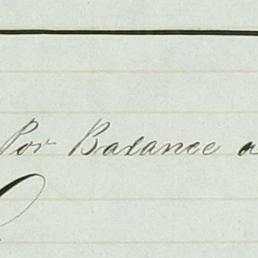 Por Balance a